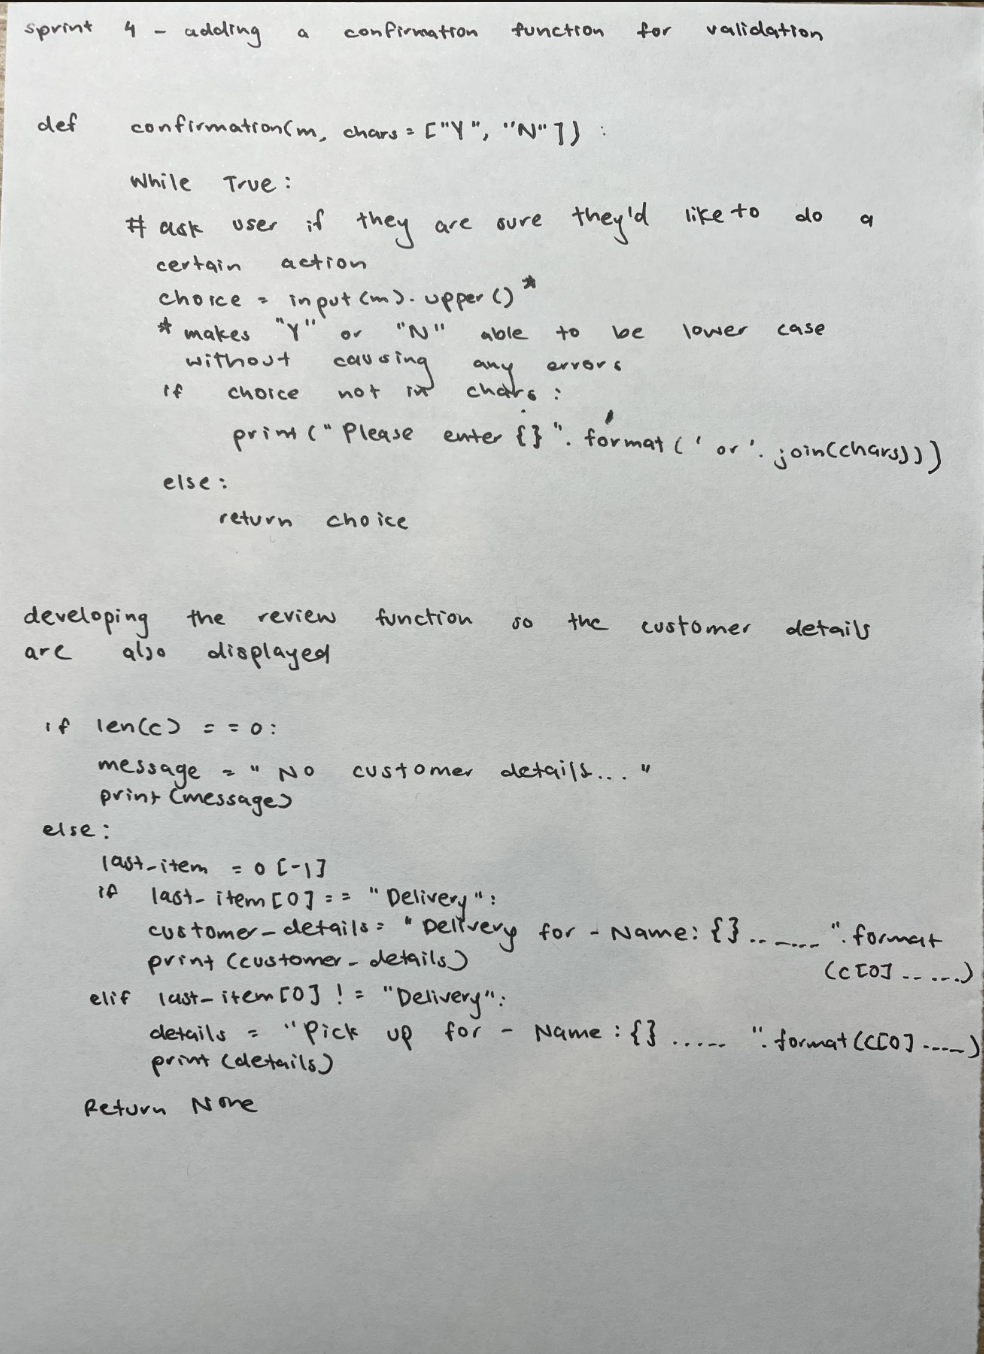 sprint 4 - adding a confirmation function for validation
def confirmation(m, chars = ["Y", "N"]) :
While True :
# ask user if they are sure they'd like to do a
certain action
choice = input(m). upper () *
* makes "Y" or "N" able to be lower case
without causing any errors
if choice not in chars :
print (" Please enter {} ". format (' or '. join(chars)))
else :
return choice
developing the review function so the customer details
are also displayed
if len(c) == 0 :
message = " No customer details... "
print (message)
else :
last_item = o [-1]
if last_item [0] == "Delivery" :
customer_details = " Delivery for - Name: {} .. ...... ". format
(c[0] .. ....)
print (customer_details)
elif last_item [0] != "Delivery" :
details = "Pick up for - Name : {} ..... ". format (c[0] .....)
print (details)
Return None